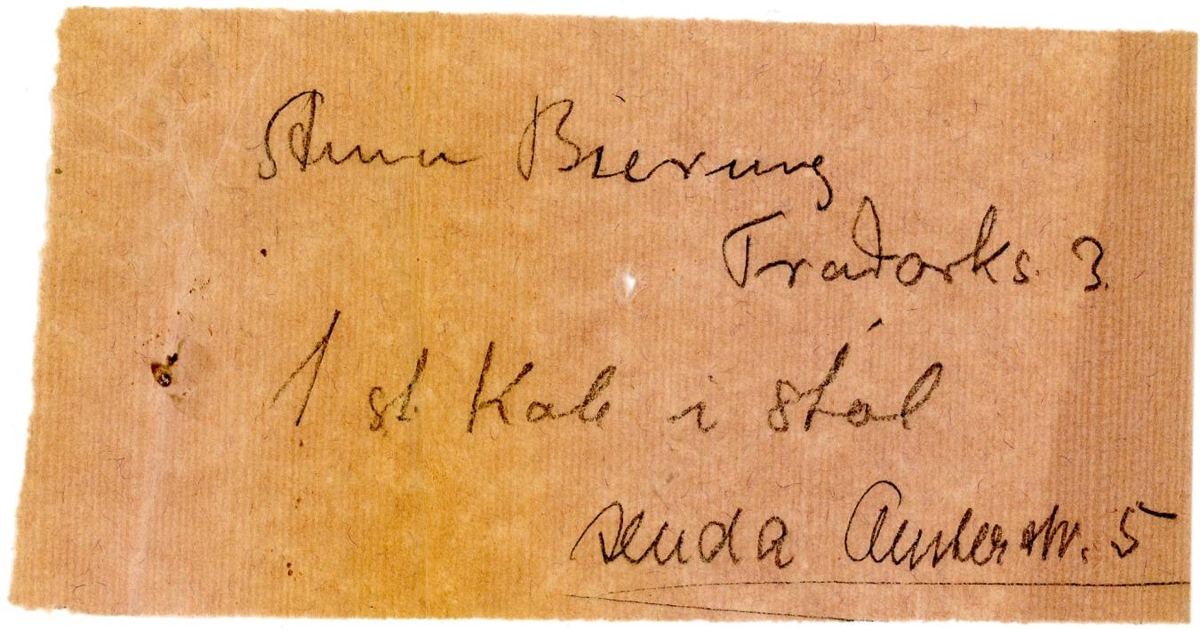 Anna Bierung
Tradarks. 3.
1 st Kab i stål
senda Amterstr. 5